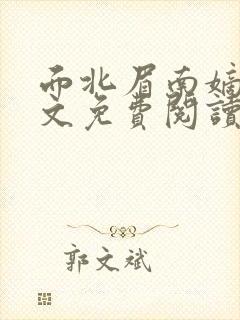 而北眉南嫡
文免費閱讀
郭文斌